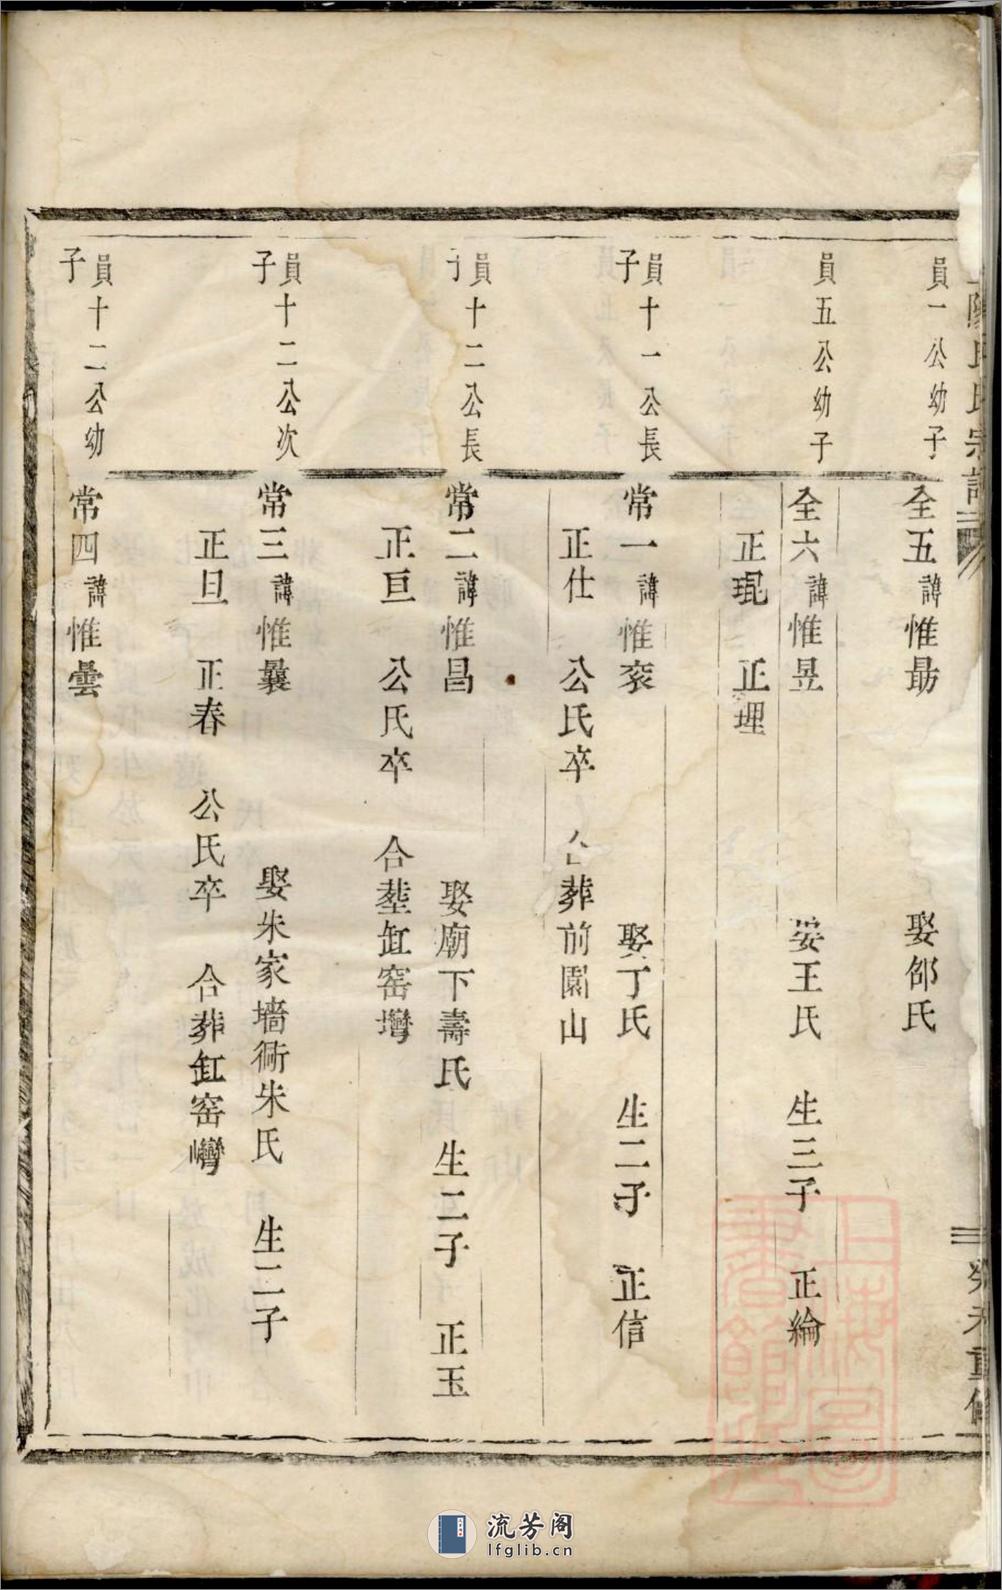 陳氏宗譜
癸未重修
員一公幼子
全五諱惟勗 娶邵氏
員五公幼子
全六諱惟昱 娶王氏 生三子 正綸
正琨 正理
員十一公長子
常一諱惟袞 娶丁氏 生二子 正信
正仕 公氏卒 合葬前園山
員十二公長子
常二諱惟昌 娶廟下壽氏 生二子 正玉
正亘 公氏卒 合塟缸窑灣
員十二公次子
常三諱惟曩 娶朱家墻衕朱氏 生二子
正旦 正春 公氏卒 合葬缸窑灣
員十二公幼子
常四諱惟曇
上海圖書館藏
流芳阁
lfglib.cn